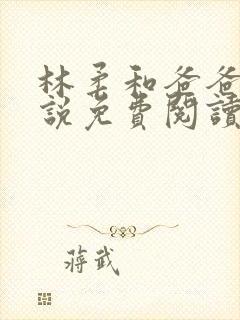 林柔和爸爸
說免費閱讀
蔣武